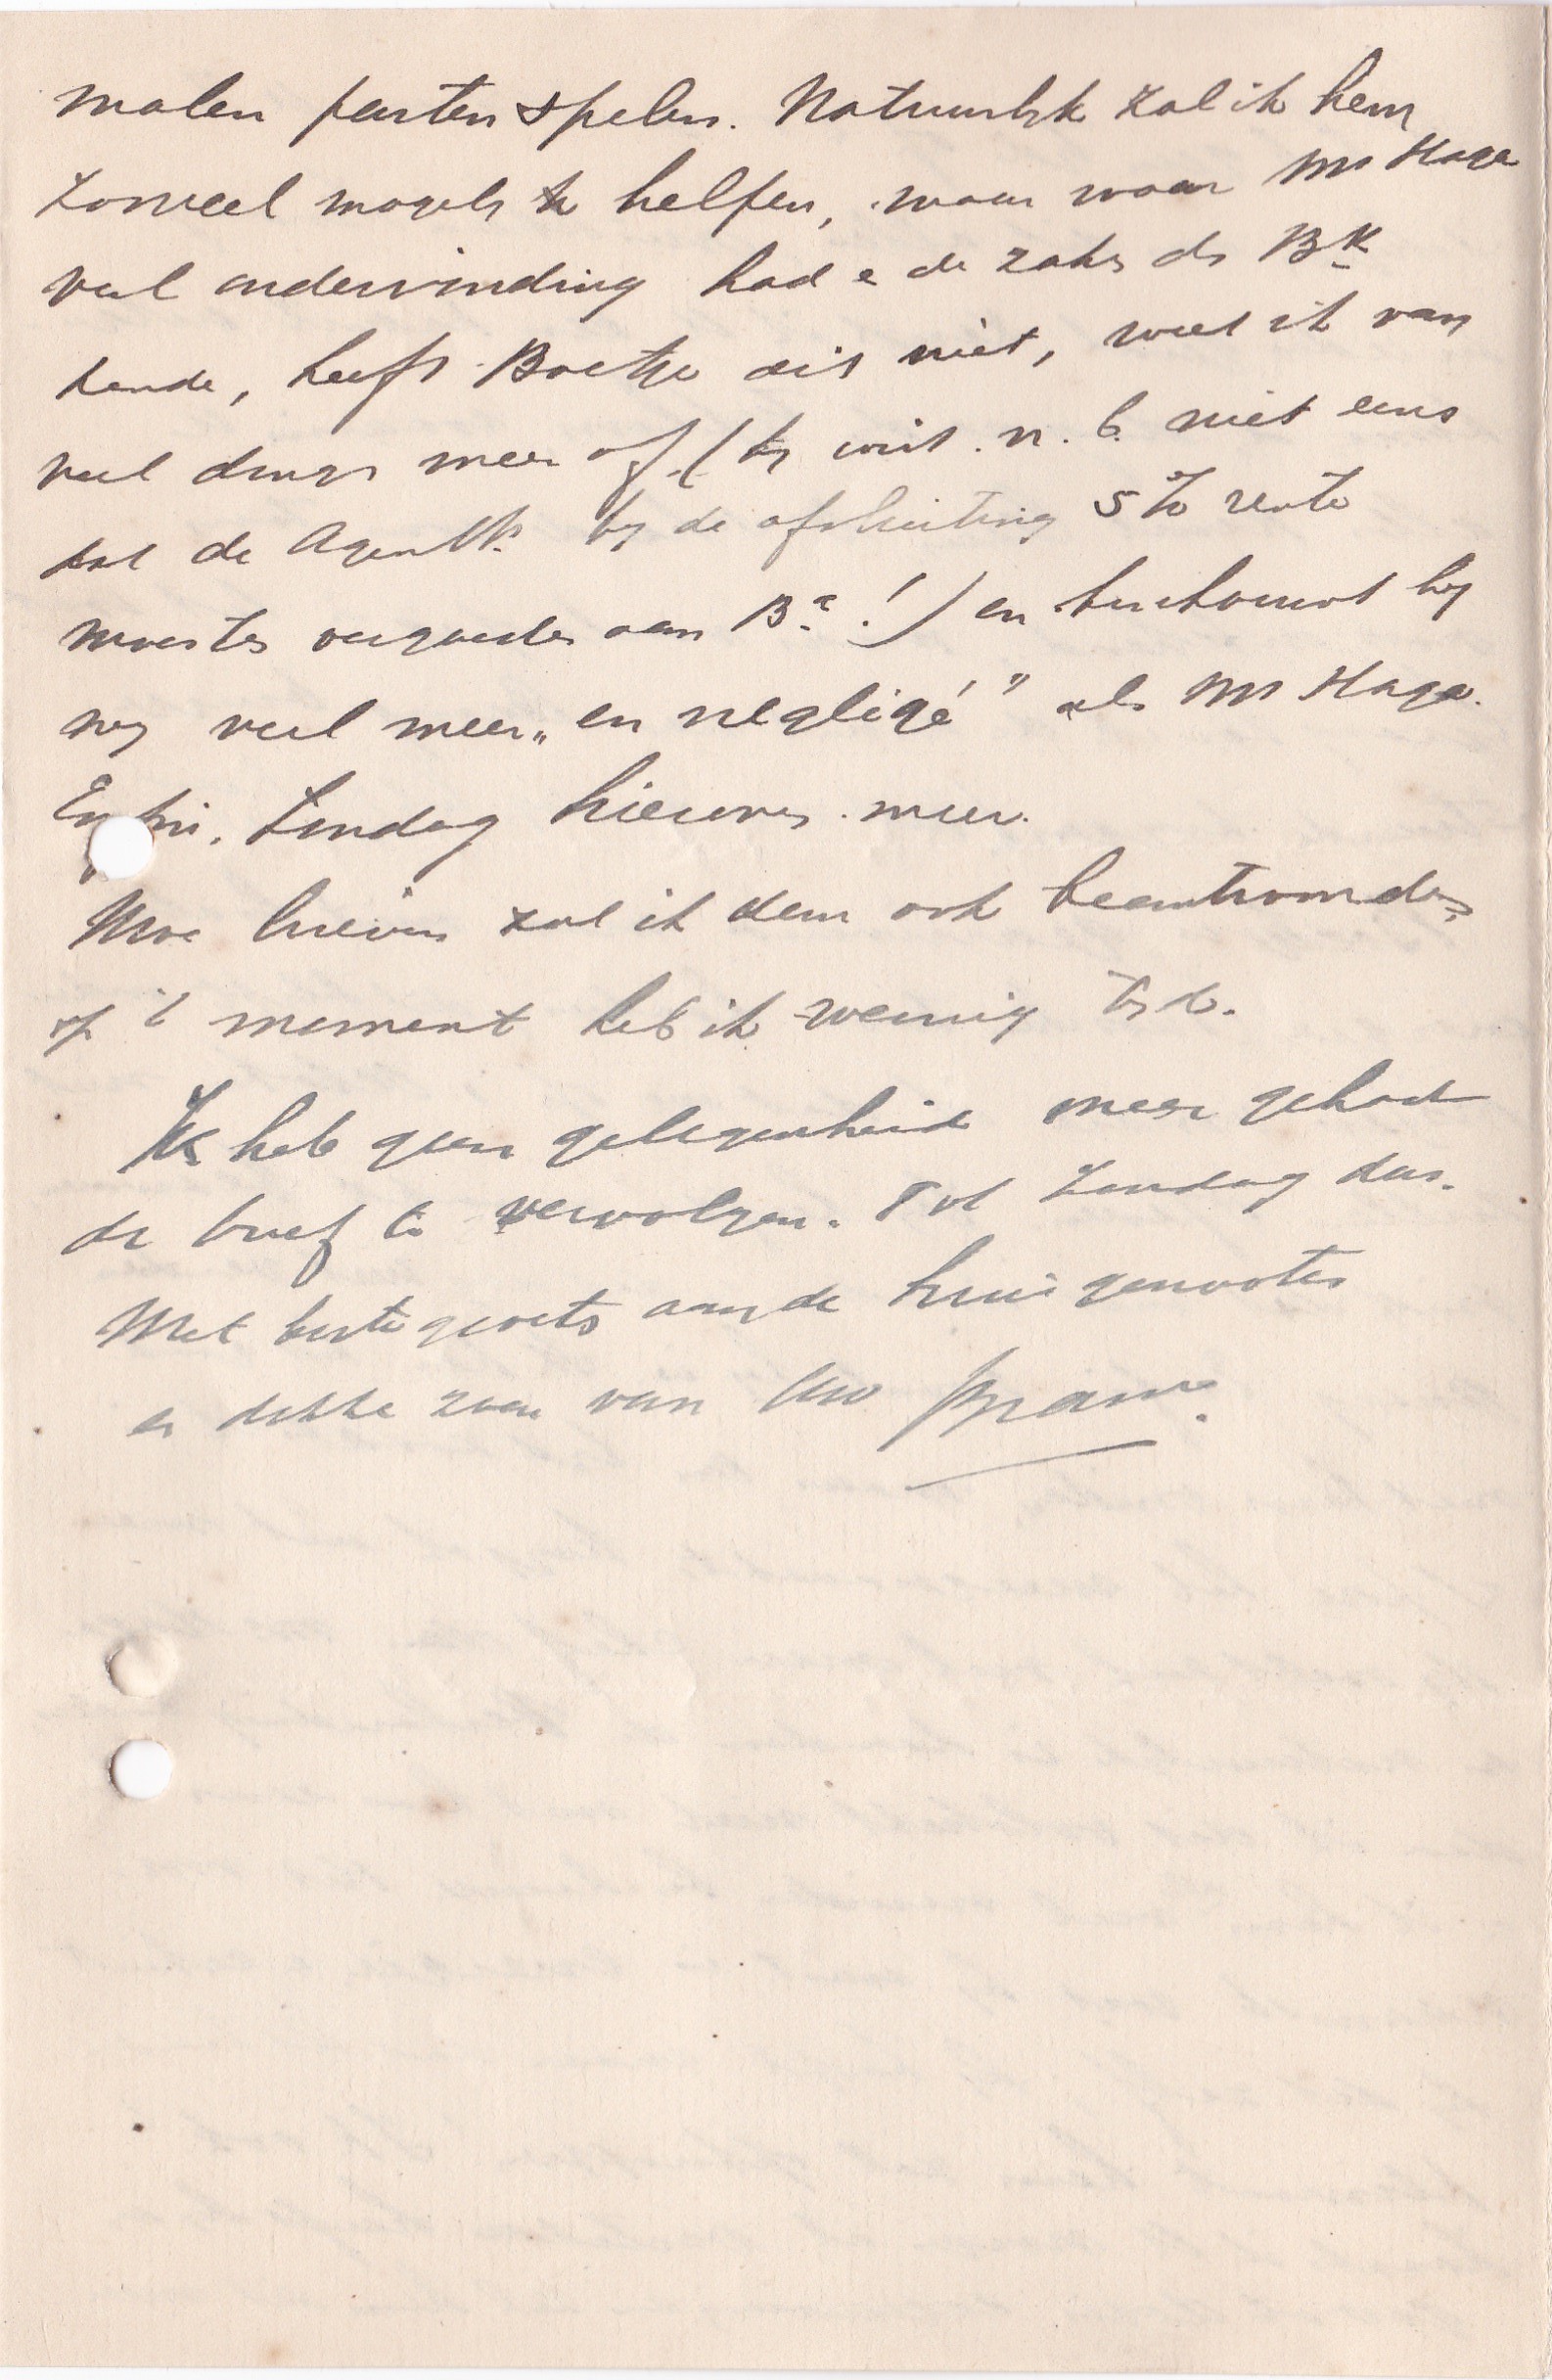 malen parten spelen. Natuurlijk zal ik hem
zooveel mogelijk helpen, maar waar Mr Haga
veel ondervinding had e de zaken de BK
kende, heeft Boetje dit niet, weet ik van
veel dingen meer af (hij wist n.b. niet eens
dat de Agentk. bij de afsluiting 5% rente
moesten vergoeden aan Ba!) en beschouwt hij
nog veel meer „en negligé" als Mr Haga.
Enfin, Zondag hierover meer.
Uwe brieven zal ik dan ook beantwoorden,
op 't moment heb ik weinig tijd.
Ik heb geen gelegenheid meer gehad
de brief te vervolgen. Tot Zondag dus.
Met beste groets aan de huisgenooten
en dikke zoen van Uw